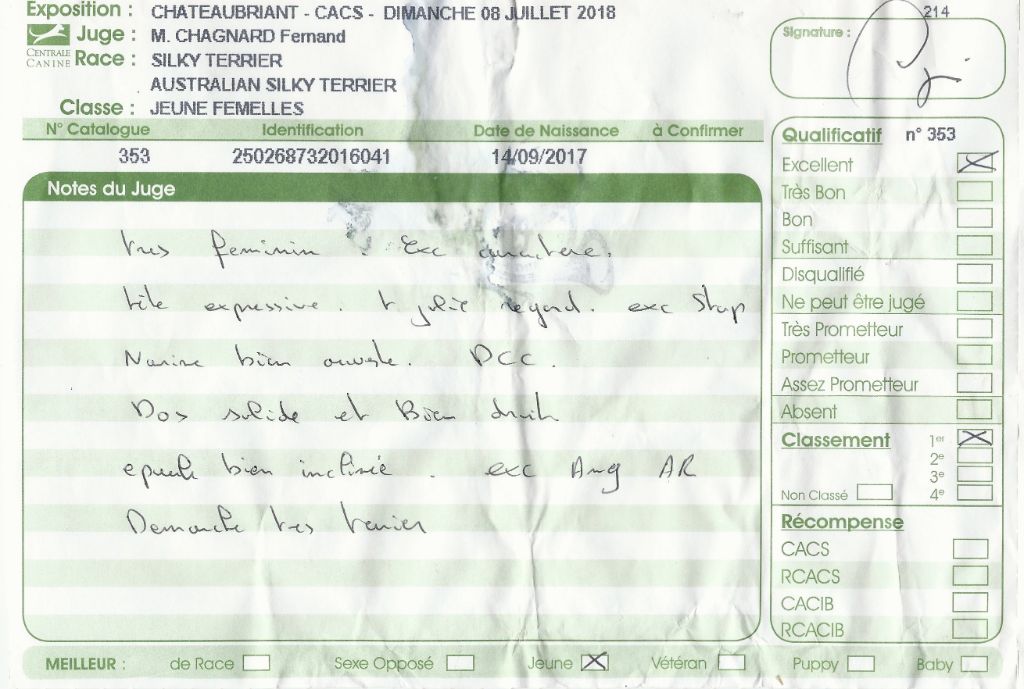 Exposition : CHATEAUBRIANT - CACS - DIMANCHE 08 JUILLET 2018
214
Juge : M. CHAGNARD Fernand
Signature :
CENTRALE CANINE
Race : SILKY TERRIER
AUSTRALIAN SILKY TERRIER
Classe : JEUNE FEMELLES
N° Catalogue Identification Date de Naissance à Confirmer
353 250268732016041 14/09/2017
Notes du Juge
tres feminin . Exc caractere.
tête expressive. t jolie regard. exc Stop
Narine bien ouverte. DCC.
Dos solide et Bien droit
epaule bien inclinée . exc Ang AR
Demarche tres
Qualificatif n° 353
Excellent
Très Bon
Bon
Suffisant
Disqualifié
Ne peut être jugé
Très Prometteur
Prometteur
Assez Prometteur
Absent
Classement 1er
2e
3e
Non Classé 4e
Récompense
CACS
RCACS
CACIB
RCACIB
MEILLEUR : de Race Sexe Opposé Jeune Vétéran Puppy Baby